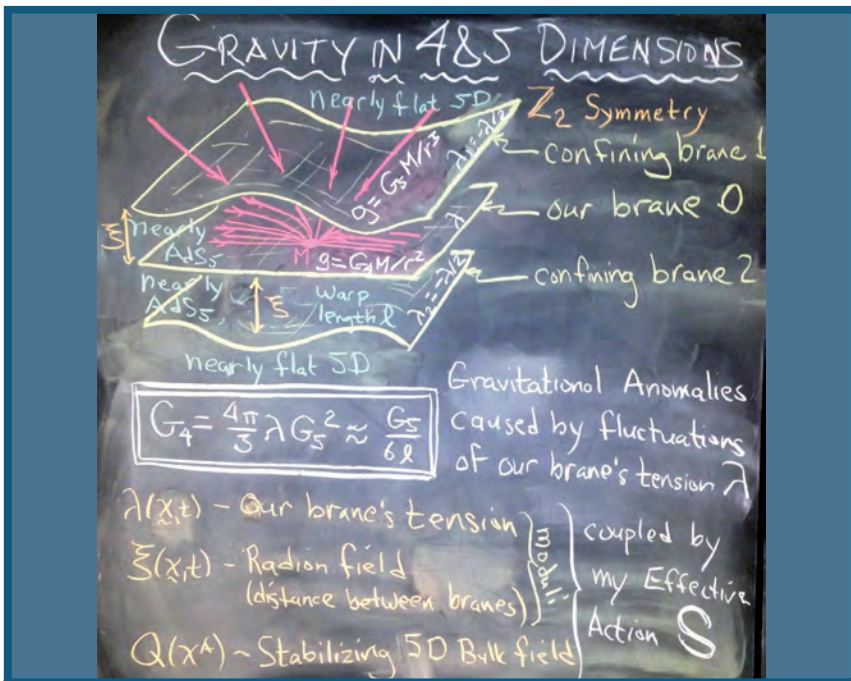 GRAVITY IN 4&5 DIMENSIONS
nearly flat 5D
Z₂ Symmetry
g=G₅M/r³
λ₁=-λ/2
confining brane 1
our brane 0
ξ
nearly
AdS₅
M
g=G₄M/r²
λ
confining brane 2
nearly
AdS₅
ξ
warp
length ℓ
λ₂=-λ/2
nearly flat 5D
G₄ = 4π/3 λ G₅² ≈ G₅/6ℓ
Gravitational Anomalies
caused by fluctuations
of our brane's tension λ
λ(x,t) – Our brane's tension
ξ(x,t) – Radion field
(distance between branes)
moduli
Q(xᴬ) ~ Stabilizing 5D Bulk field
coupled by
my Effective
Action S